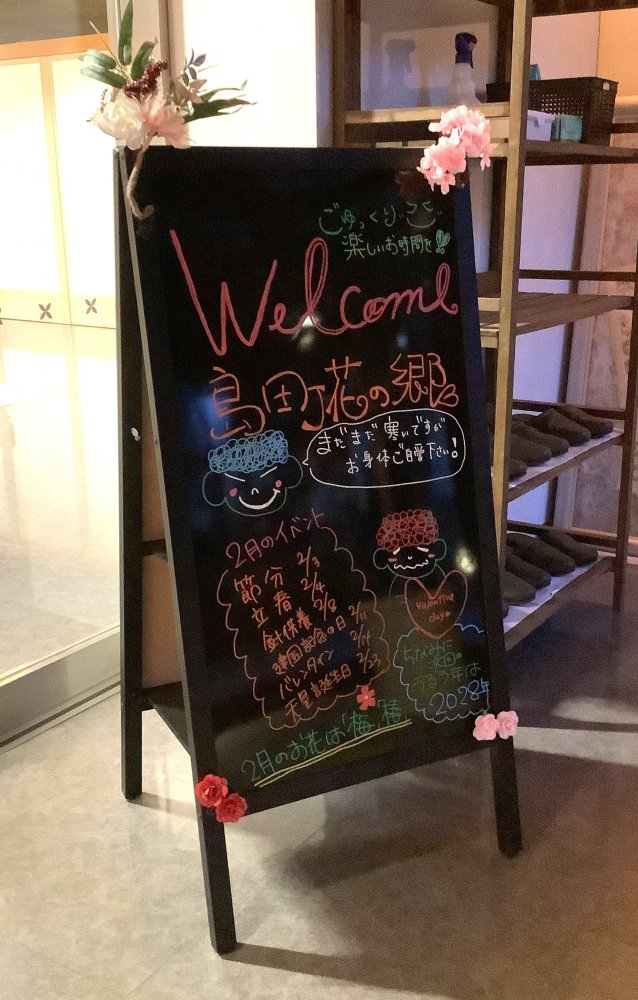 ごゆっくりぃっくじ
楽しいお時間を!!
Welcome
島田 花の郷
まだまだ 寒いですが
お身体ご自愛下さい!
2月のイベント
節分 2/3
立春 2/4
針供養 2/8
建国記念の日 2/11
バレンタイン 2/14
天皇誕生日 2/23
Valentine
day
ちなみに
次回の
うるう年は
2028年
2月のお花は「梅」「椿